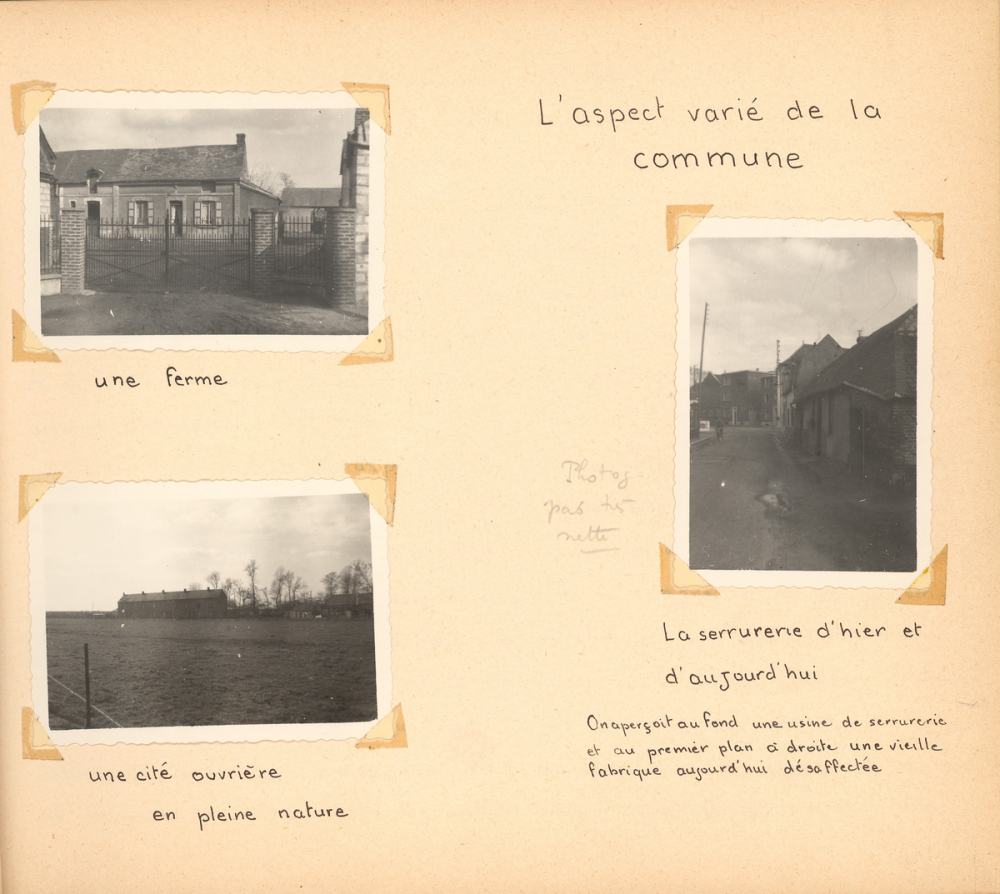 L'aspect varié de la
commune
une ferme
Photog
pas très
nette
La serrurerie d'hier et
d'aujourd'hui
On aperçoit au fond une usine de serrurerie
et au premier plan à droite une vieille
fabrique aujourd'hui désaffectée
une cité ouvrière
en pleine nature